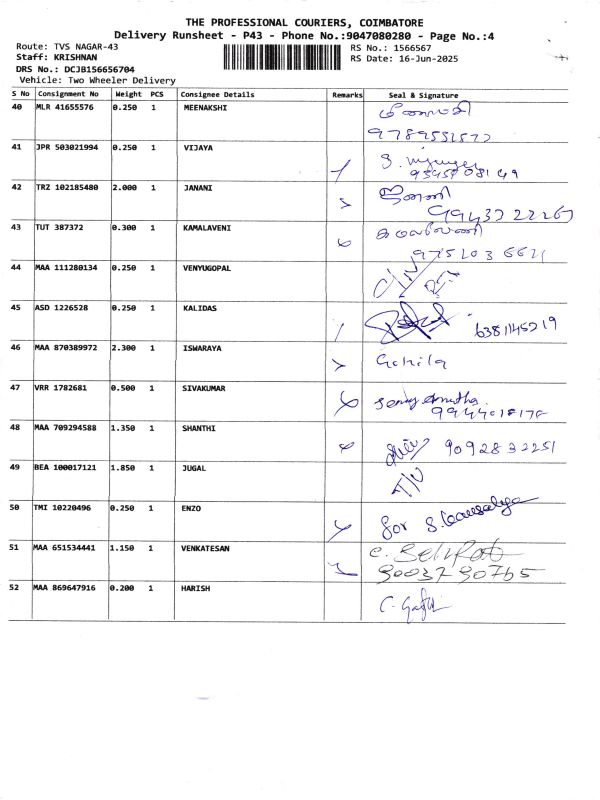 THE PROFESSIONAL COURIERS, COIMBATORE
Delivery Runsheet - P43 - Phone No.:9047080280 - Page No.:4
Route: TVS NAGAR-43
Staff: KRISHNAN
DRS No.: DCJB156656704
Vehicle: Two Wheeler Delivery
RS No.: 1566567
RS Date: 16-Jun-2025
S No Consignment No Weight PCS Consignee Details Remarks Seal & Signature
40 MLR 41655576 0.250 1 MEENAKSHI மீனாட்சி
41 JPR 503021994 0.250 1 VIJAYA
42 TRZ 102185480 2.000 1 JANANI ஜனனி
43 TUT 387372 0.300 1 KAMALAVENI கமலவேணி
44 MAA 111280134 0.250 1 VENYUGOPAL
45 ASD 1226528 0.250 1 KALIDAS 6381145219
46 MAA 870389972 2.300 1 ISWARAYA Gokila
47 VRR 1782681 0.500 1 SIVAKUMAR
48 MAA 709294588 1.350 1 SHANTHI 9092832251
49 BEA 100017121 1.850 1 JUGAL
50 TMI 10220496 0.250 1 ENZO for S. Kousalya
51 MAA 651534441 1.150 1 VENKATESAN
9003790765
52 MAA 869647916 0.200 1 HARISH